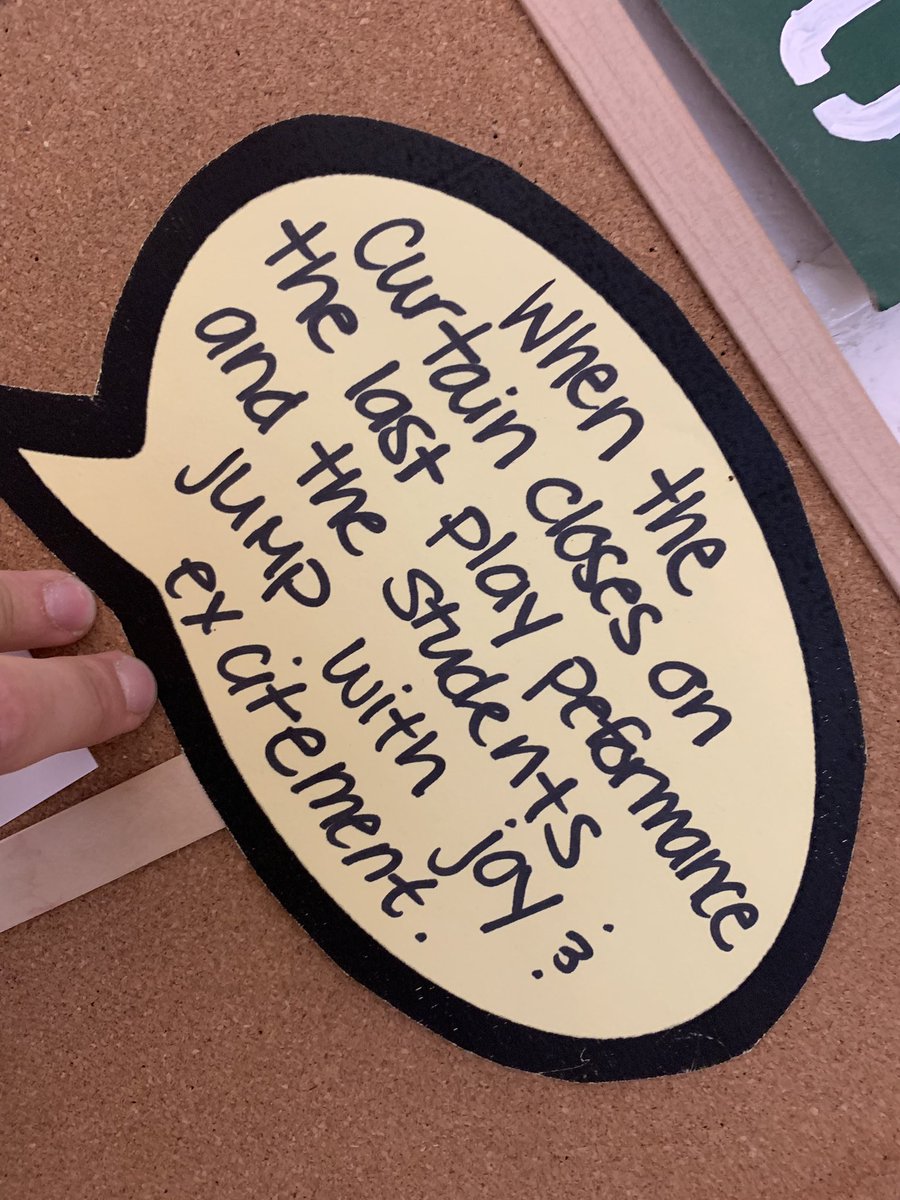 When the
Curtain closes on
the last play peformance
and the students
JUMP with joy &
excitement.